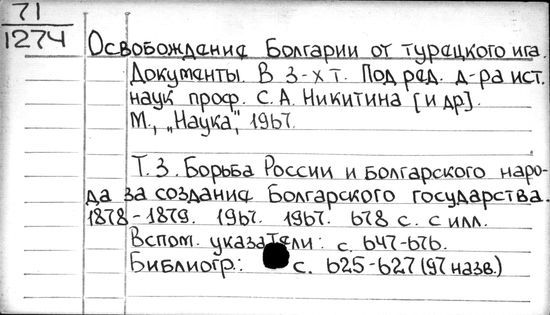 71
1274
Освобождение Болгарии от турецкого ига.
Документы. В 3-х т. Под ред. д-ра ист.
наук проф. С.А. Никитина [и др].
М., „Наука", 1967.
Т. 3. Борьба России и болгарского наро-
да за создание Болгарского государства.
1878-1879. 1967. 1967. 678 с. с илл.
Вспом. указатели: с. 647-676.
Библиогр.: с. 625-627 (97 назв.)